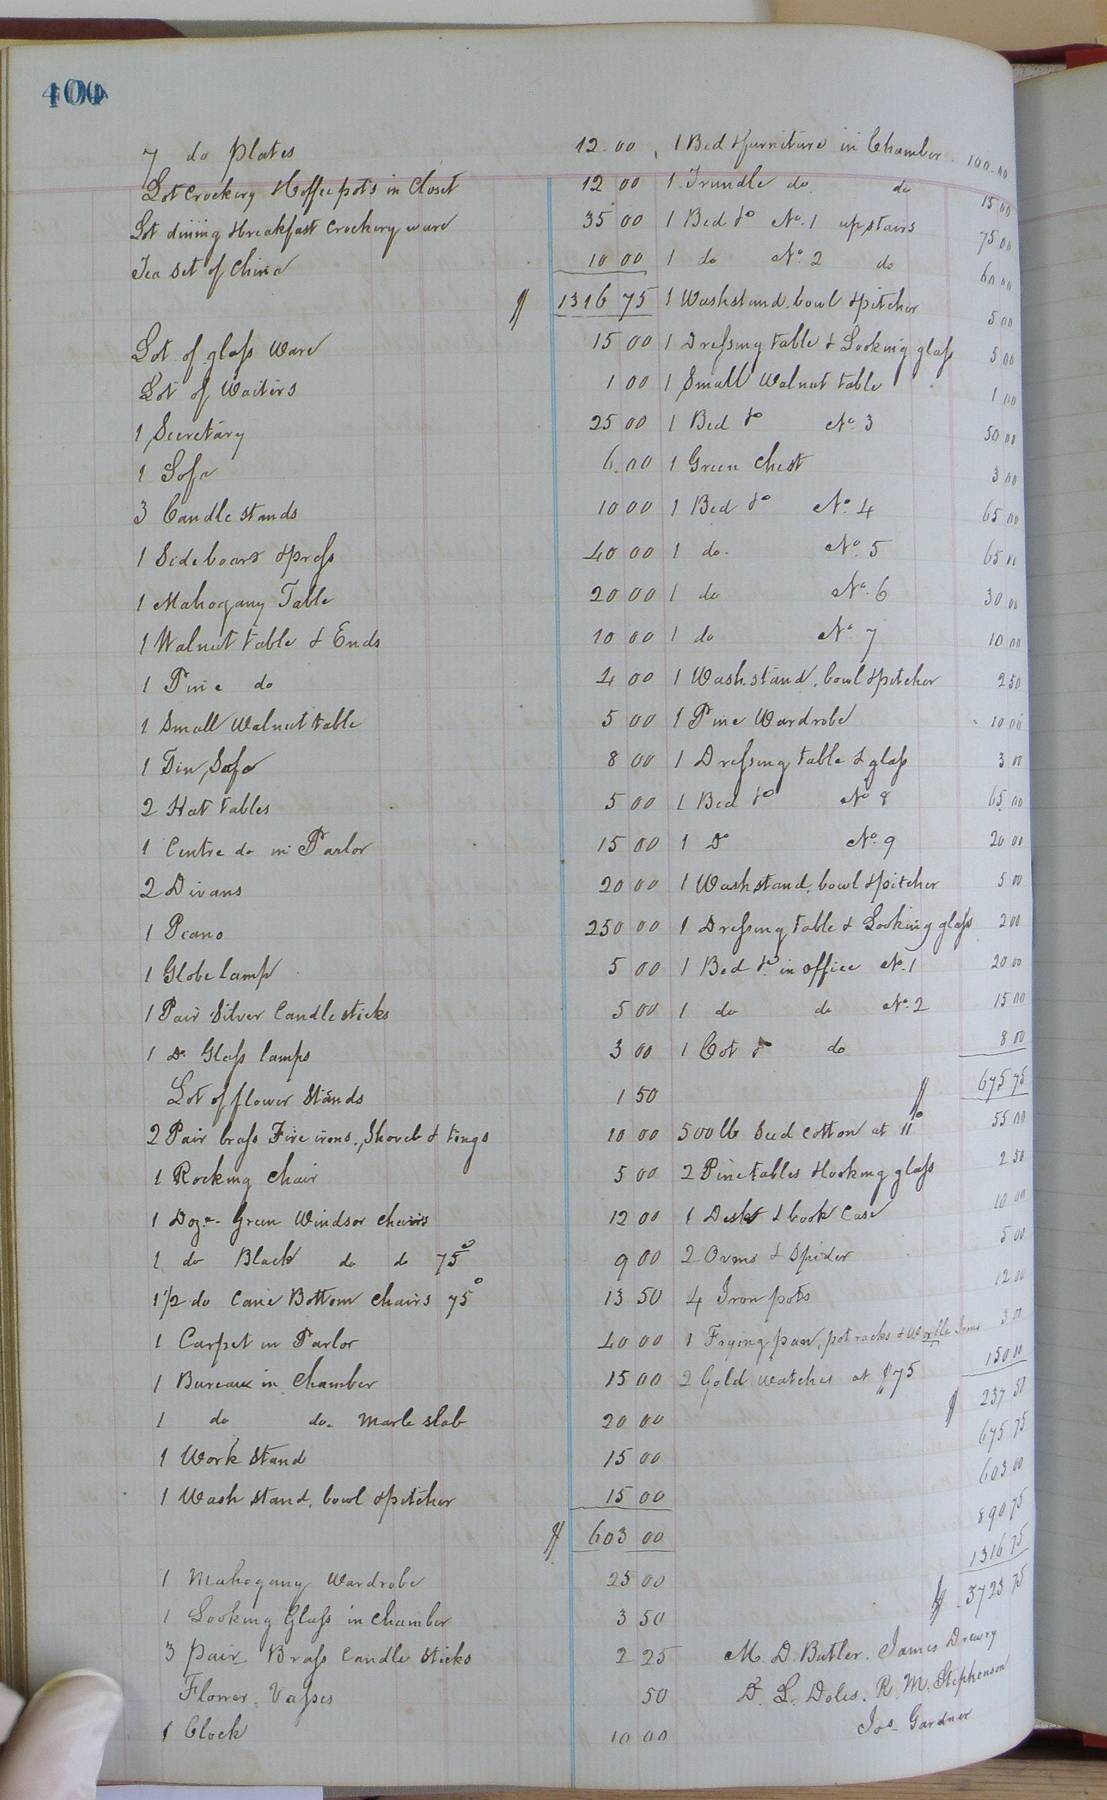 400
7 do Plates 12.00
Lot Crockery & Coffee pots in Closet 12 00
Lot dining & breakfast Crockery ware 35 00
Tea Set of China 10 00
$ 1316 75
Lot of glass Ware 15 00
Lot of Waiters 1 00
1 Secretary 25 00
1 Sofa 6.00
3 Candle stands 10 00
1 Sideboard & press 40 00
1 Mahogany Table 20 00
1 Walnut table & Ends 10 00
1 Pine do 4 00
1 Small Walnut table 5 00
1 Tin Safe 8 00
2 Hat tables 5 00
1 Centre do in Parlor 15 00
2 Divans 20 00
1 Piano 250 00
1 Globe lamp 5 00
1 Pair Silver Candlesticks 5 00
1 Do Glass lamps 3 00
Lot of flower Stands 1 50
2 Pair brass Fire irons, Shovel & tongs 10 00
1 Rocking Chair 5 00
1 Doz. Green Windsor Chairs 12 00
1 do Black do do 75c 9 00
1 1/2 do Cane Bottom Chairs 75c 13 50
1 Carpet in Parlor 40 00
1 Bureaux in Chamber 15 00
1 do do. Marle slab 20 00
1 Work Stand 15 00
1 Wash stand, bowl & pitcher 15 00
$ 603 00
1 Mahogany Wardrobe 25 00
1 Looking Glass in Chamber 3 50
3 pair Brass Candle Sticks 2 25
Flower Vasses 50
1 Clock 10 00
1 Bed & furniture in Chamber 100.00
1 Trundle do. do 15 00
1 Bed &c No. 1 upstairs 75 00
1 do No. 2 do 60 00
1 Washstand, bowl & pitcher 5 00
1 Dressing table & Looking glass 5 00
1 Small Walnut table 1 00
1 Bed &c No. 3 50 00
1 Green Chest 3 00
1 Bed &c No. 4 65 00
1 do. No. 5 65 00
1 do No. 6 30 00
1 do No 7 10 00
1 Wash stand, bowl & pitcher 2 50
1 Pine Wardrobe 10 00
1 Dressing table & glass 3 00
1 Bed &c No 8 65 00
1 Do No. 9 20 00
1 Wash stand, bowl & pitcher 5 00
1 Dressing table & Looking glass 2 00
1 Bed &c in office No. 1 20 00
1 do do No. 2 15 00
1 Cot &c do 8 00
$ 675 75
500 lb Seed Cotton at 11c 55 00
2 Pine tables & looking glass 2 50
1 Desk & book Case 10 00
2 Ovens & Spider 5 00
4 Iron pots 12 00
1 Frying pan, pot racks & Waffle Irons 3 00
2 Gold watches at $75 150 00
$ 237 50
675 75
603 00
890 75
1316 75
$ 3723 75
M. D. Butler. James Drewry
D. L. Doles. R. M. Stephenson
Jos. Gardner